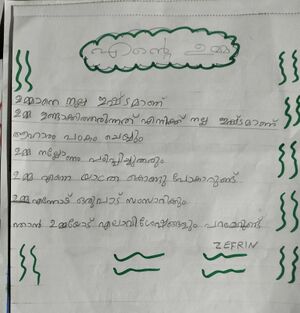 എന്റെ ഉമ്മ
ഉമ്മാനെ നല്ല ഇഷ്ടമാണ്
ഉമ്മ ഉണ്ടാക്കിത്തരുന്നത് എനിക്ക് നല്ല ഇഷ്ടമാണ്
ആഹാരം പാകം ചെയ്യും
ഉമ്മ നല്ലോണം പഠിപ്പിച്ചുതരും
ഉമ്മ എന്നെ യാത്ര കൊണ്ടു പോകാറുണ്ട്
ഉമ്മ എന്നോട് ഒരുപാട് സംസാരിക്കും
ഞാൻ ഉമ്മയോട് എല്ലാവിശേഷങ്ങളും പറയാറുണ്ട്
ZEFRIN